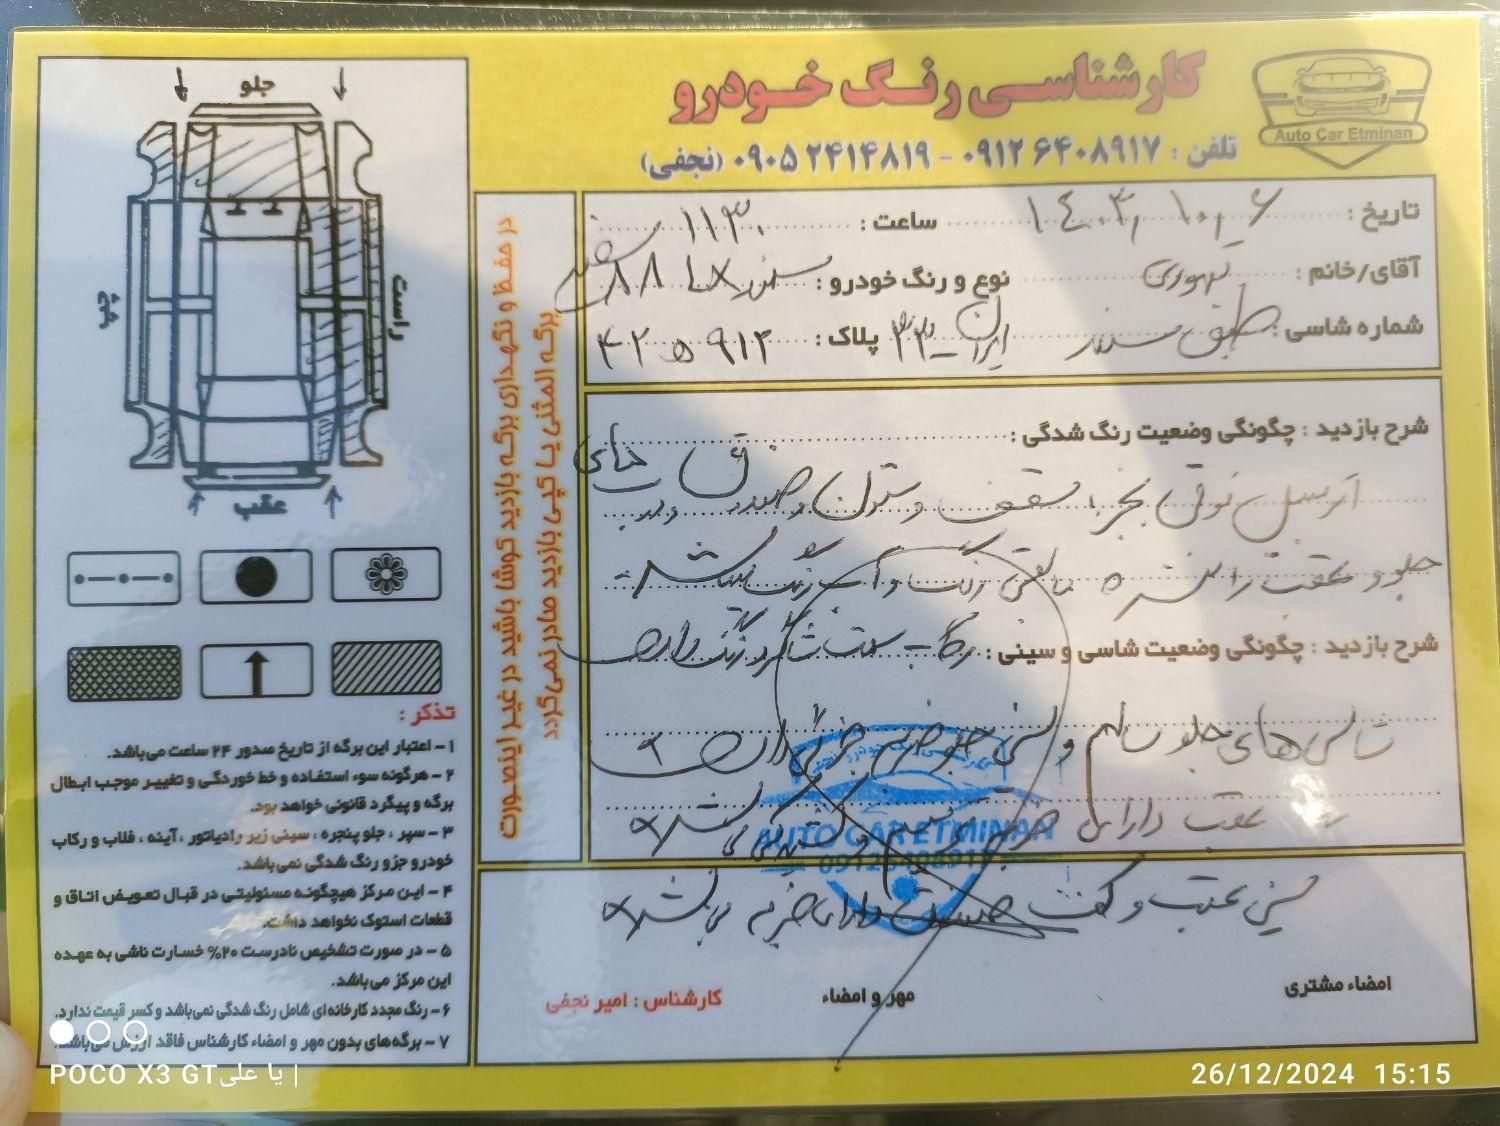 کارشناسی رنگ خودرو
Auto Car Etminan
تلفن : ۰۹۱۲۶۴۰۸۹۱۷ - ۰۹۰۵۲۴۱۴۸۱۹ (نجفی)
تاریخ : ۱۴۰۳,۱۰,۶ ساعت : ۱۱۳۰
آقای/خانم : نوع و رنگ خودرو : سمند LX ۸۸ سفید
شماره شاسی : طبق سند پلاک : ایران ۳۳
شرح بازدید : چگونگی وضعیت رنگ شدگی :
اتومبیل فوق بجز سقف و ستون و صندوق
جلو و عقب راننده مابقی رنگ و
شرح بازدید : چگونگی وضعیت شاسی و سینی : رکاب سمت شاگرد رنگ دارد
شاسی های جلو سالم و سینی جلو ضربه جزئی دارد
عقب دارای
AUTO CAR ETMINAN
سینی عقب و کف دارای ضربه می باشد
امضاء مشتری
مهر و امضاء
کارشناس : امیر نجفی
در حفظ و نگهداری برگه بازدید کوشا باشید در غیر اینصورت
برگه المثنی یا کپی بازدید صادر نمی‌گردد
جلو
راست
چپ
عقب
تذکر :
۱- اعتبار این برگه از تاریخ صدور ۲۴ ساعت می‌باشد.
۲- هرگونه سوء استفاده و خط خوردگی و تغییر موجب ابطال
برگه و پیگرد قانونی خواهد بود.
۳- سپر ، جلو پنجره ، سینی زیر رادیاتور ، آینه ، قلاب و رکاب
خودرو جزو رنگ شدگی نمی‌باشد.
۴- این مرکز هیچگونه مسئولیتی در قبال تعویض اتاق و
قطعات استوک نخواهد داشت.
۵- در صورت تشخیص نادرست ۲۰% خسارت ناشی به عهده
این مرکز می‌باشد.
۶- رنگ مجدد کارخانه‌ای شامل رنگ شدگی نمی‌باشد و کسر قیمت ندارد.
۷- برگه‌های بدون مهر و امضاء کارشناس فاقد ارزش می‌باشد.
POCO X3 GT یا علی |
26/12/2024 15:15